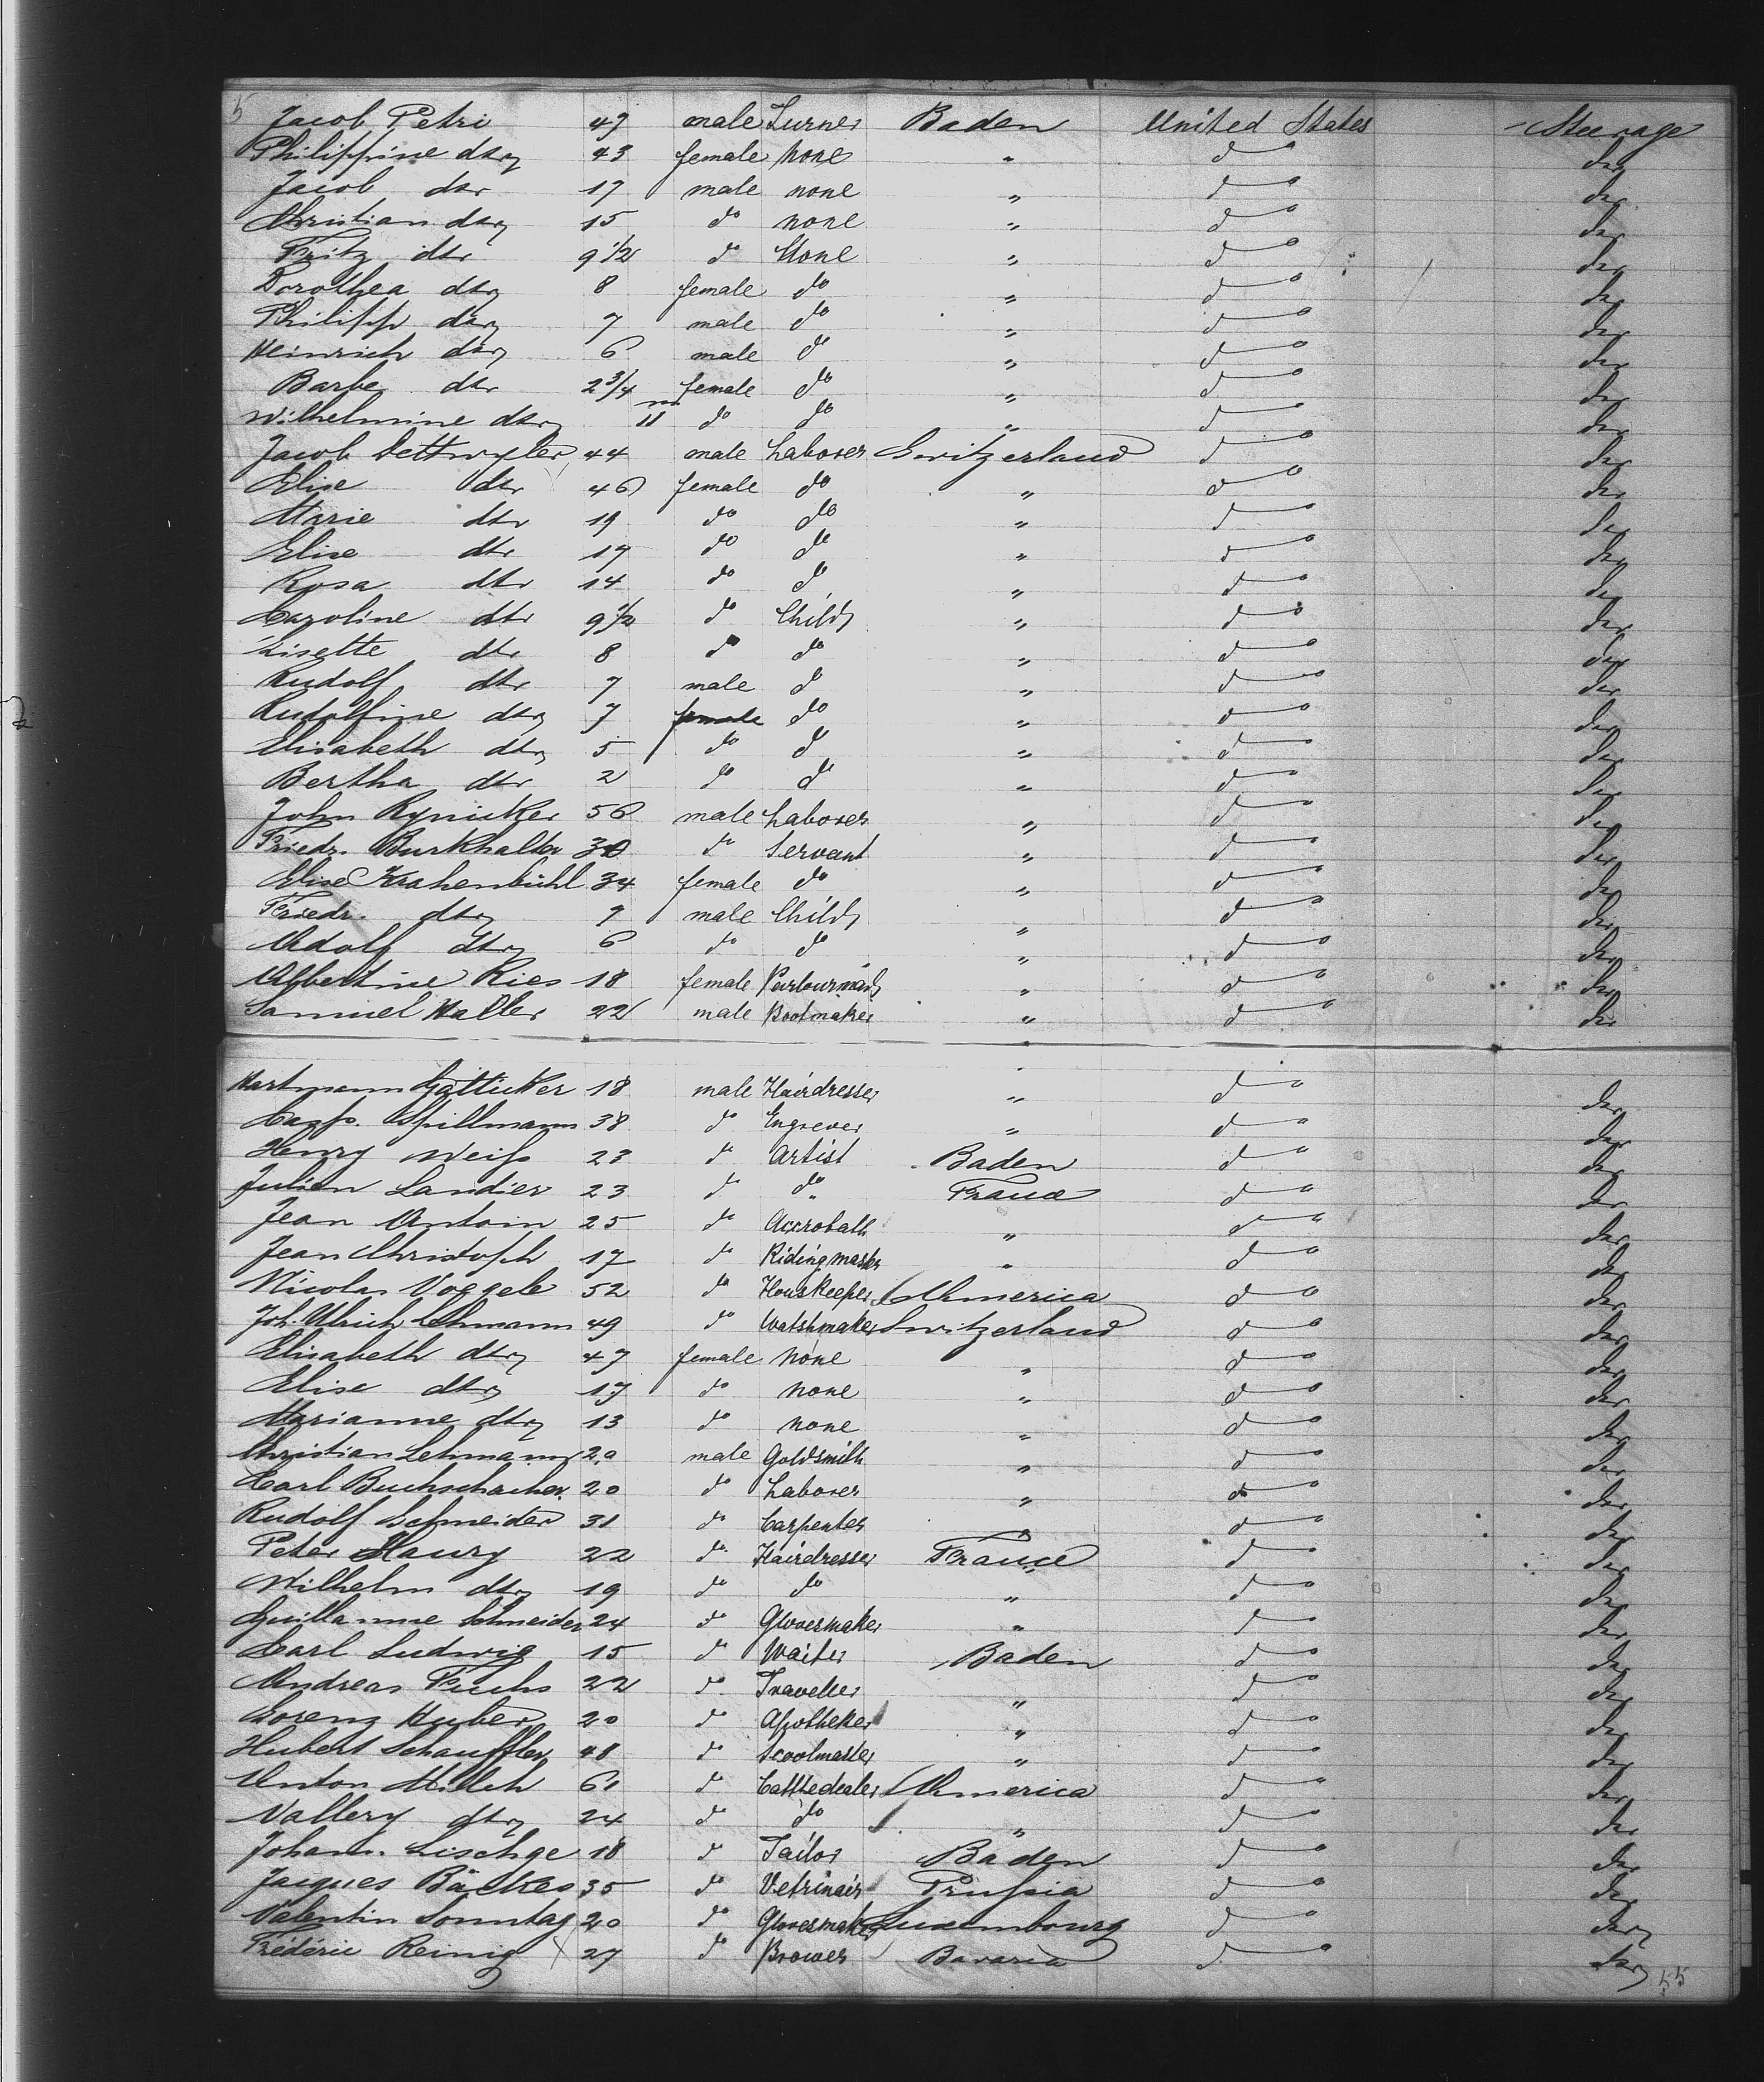 5 Jacob Petri 47 male Turner Baden United States Steerage
Philippine dto 43 female none " do do
Jacob dto 17 male none " do do
Christian dto 15 do none " do do
Fritz dto 9 1/2 do None " do do
Dorothea dto 8 female do " do do
Philipp dto 7 male do " do do
Heinrich dto 6 male do " do do
Barbe dto 2 3/4 female do " do do
Wilhelmine dto 11 m do do " do do
Jacob Dettwyler 44 male Laborer Switzerland do do
Elise dto 46 female do " do do
Marie dto 19 do do " do do
Elise dto 17 do do " do do
Rosa dto 14 do do " do do
Caroline dto 9 1/2 do Child " do do
Lisette dto 8 do do " do do
Rudolf dto 7 male do " do do
Rudolfine dto 7 female do " do do
Elisabeth dto 5 do do " do do
Bertha dto 2 do do " do do
John Rynicker 56 male Laborer " do do
Friedr. Burkhalter 30 do Servant " do do
Elise Krahenbühl 34 female do " do do
Friedr. dto 9 male Child " do do
Adolf dto 6 do do " do do
Albertine Ries 18 female Parlourmaid " do do
Samuel Haller 22 male Bootmaker " do do
Hartmann Gattiker 18 male Hairdresser " do do
Casp. Spillmann 38 do Engrever " do do
Henry Weiß 23 do Artist Baden do do
Julien Landier 23 do do France do do
Jean Antoin 25 do Accrobath " do do
Jean Christoph 17 do Ridingmaster " do do
Nicolas Voggele 52 do Houskeeper America do do
Joh. Ulrich Lehmann 49 do Watshmaker Switzerland do do
Elisabeth dto 47 female none " do do
Elise dto 17 do none " do do
Marianne dto 13 do none " do do
Christian Lehmann 20 male Goldsmith " do do
Carl Buchschacher 20 do Laborer " do do
Rudolf Schneider 31 do Carpenter " do do
Peter Maury 22 do Hairdresser France do do
Wilhelm dto 19 do do " do do
Guillaume Schneider 24 do Glovesmaker " do do
Carl Ludwig 15 do Waiter Baden do do
Andreas Fuchs 22 do Traveller " do do
Lorenz Huber 20 do Apotheker " do do
Hubert Schauffler 48 do Scoolmaster " do do
Anton Milch 61 do Cattledealer America do do
Vallery dto 24 do do " do do
Johann. Lischge 18 do Tailor Baden do do
Jacques Bäckes 35 do Vetrinair Prußia do do
Valentin Sonntag 20 do Glovesmaker Luxembourg do do
Frédéric Reinig 27 do Brower Bavaria do do
55